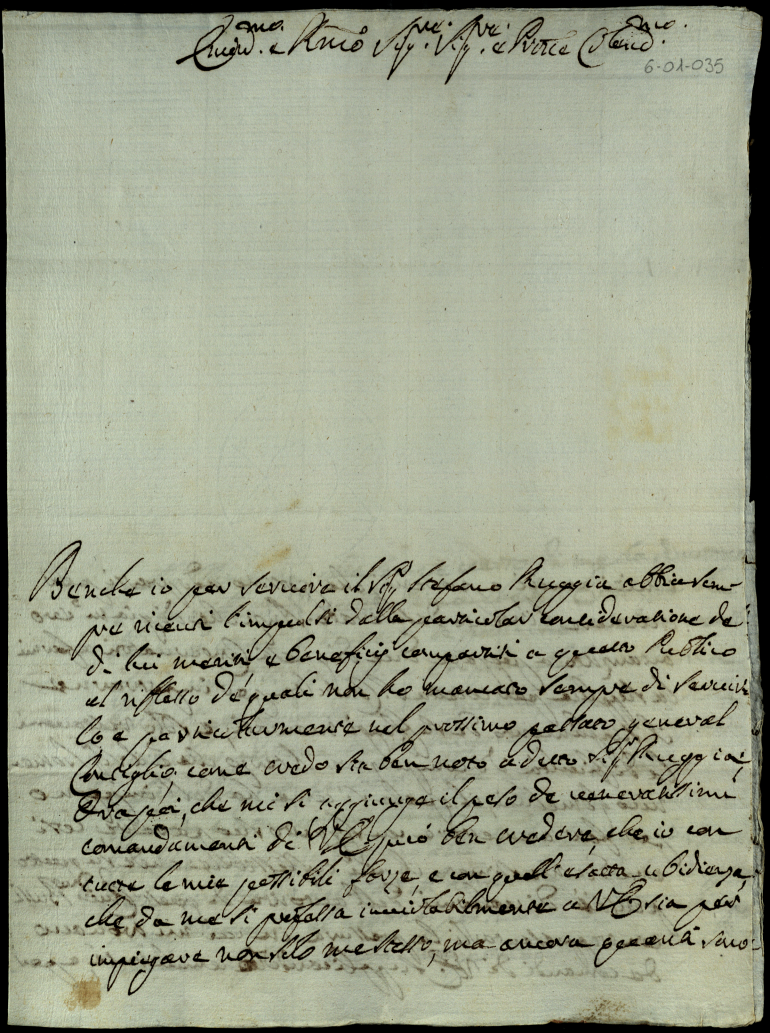 Emin.mo e R.mo Sig.re Sig.re e Prone Colend.mo
6-01-035
Benche io per servire il Sig.r Stefano Ruggia abbia sem-
pre ricevuti l'impulsi dalla particolar considerazione de
di lui meriti e beneficij compartiti a questo Publico
al riflesso de quali non ho mancato sempre di servir-
lo e particolarmente nel prossimo passato general
Consiglio, come credo sia ben noto a detto Sig.r Ruggia,
Ora poi, che mi si aggiunge il peso de veneratissimi
comandamenti di VE può ben credere, che io con
tutte le mie possibili forze, e con quell'esatta ubidienza,
che da me si professa inviolabilmente a VE sia per
impiegare non solo me stesso, ma ancora quanti sono